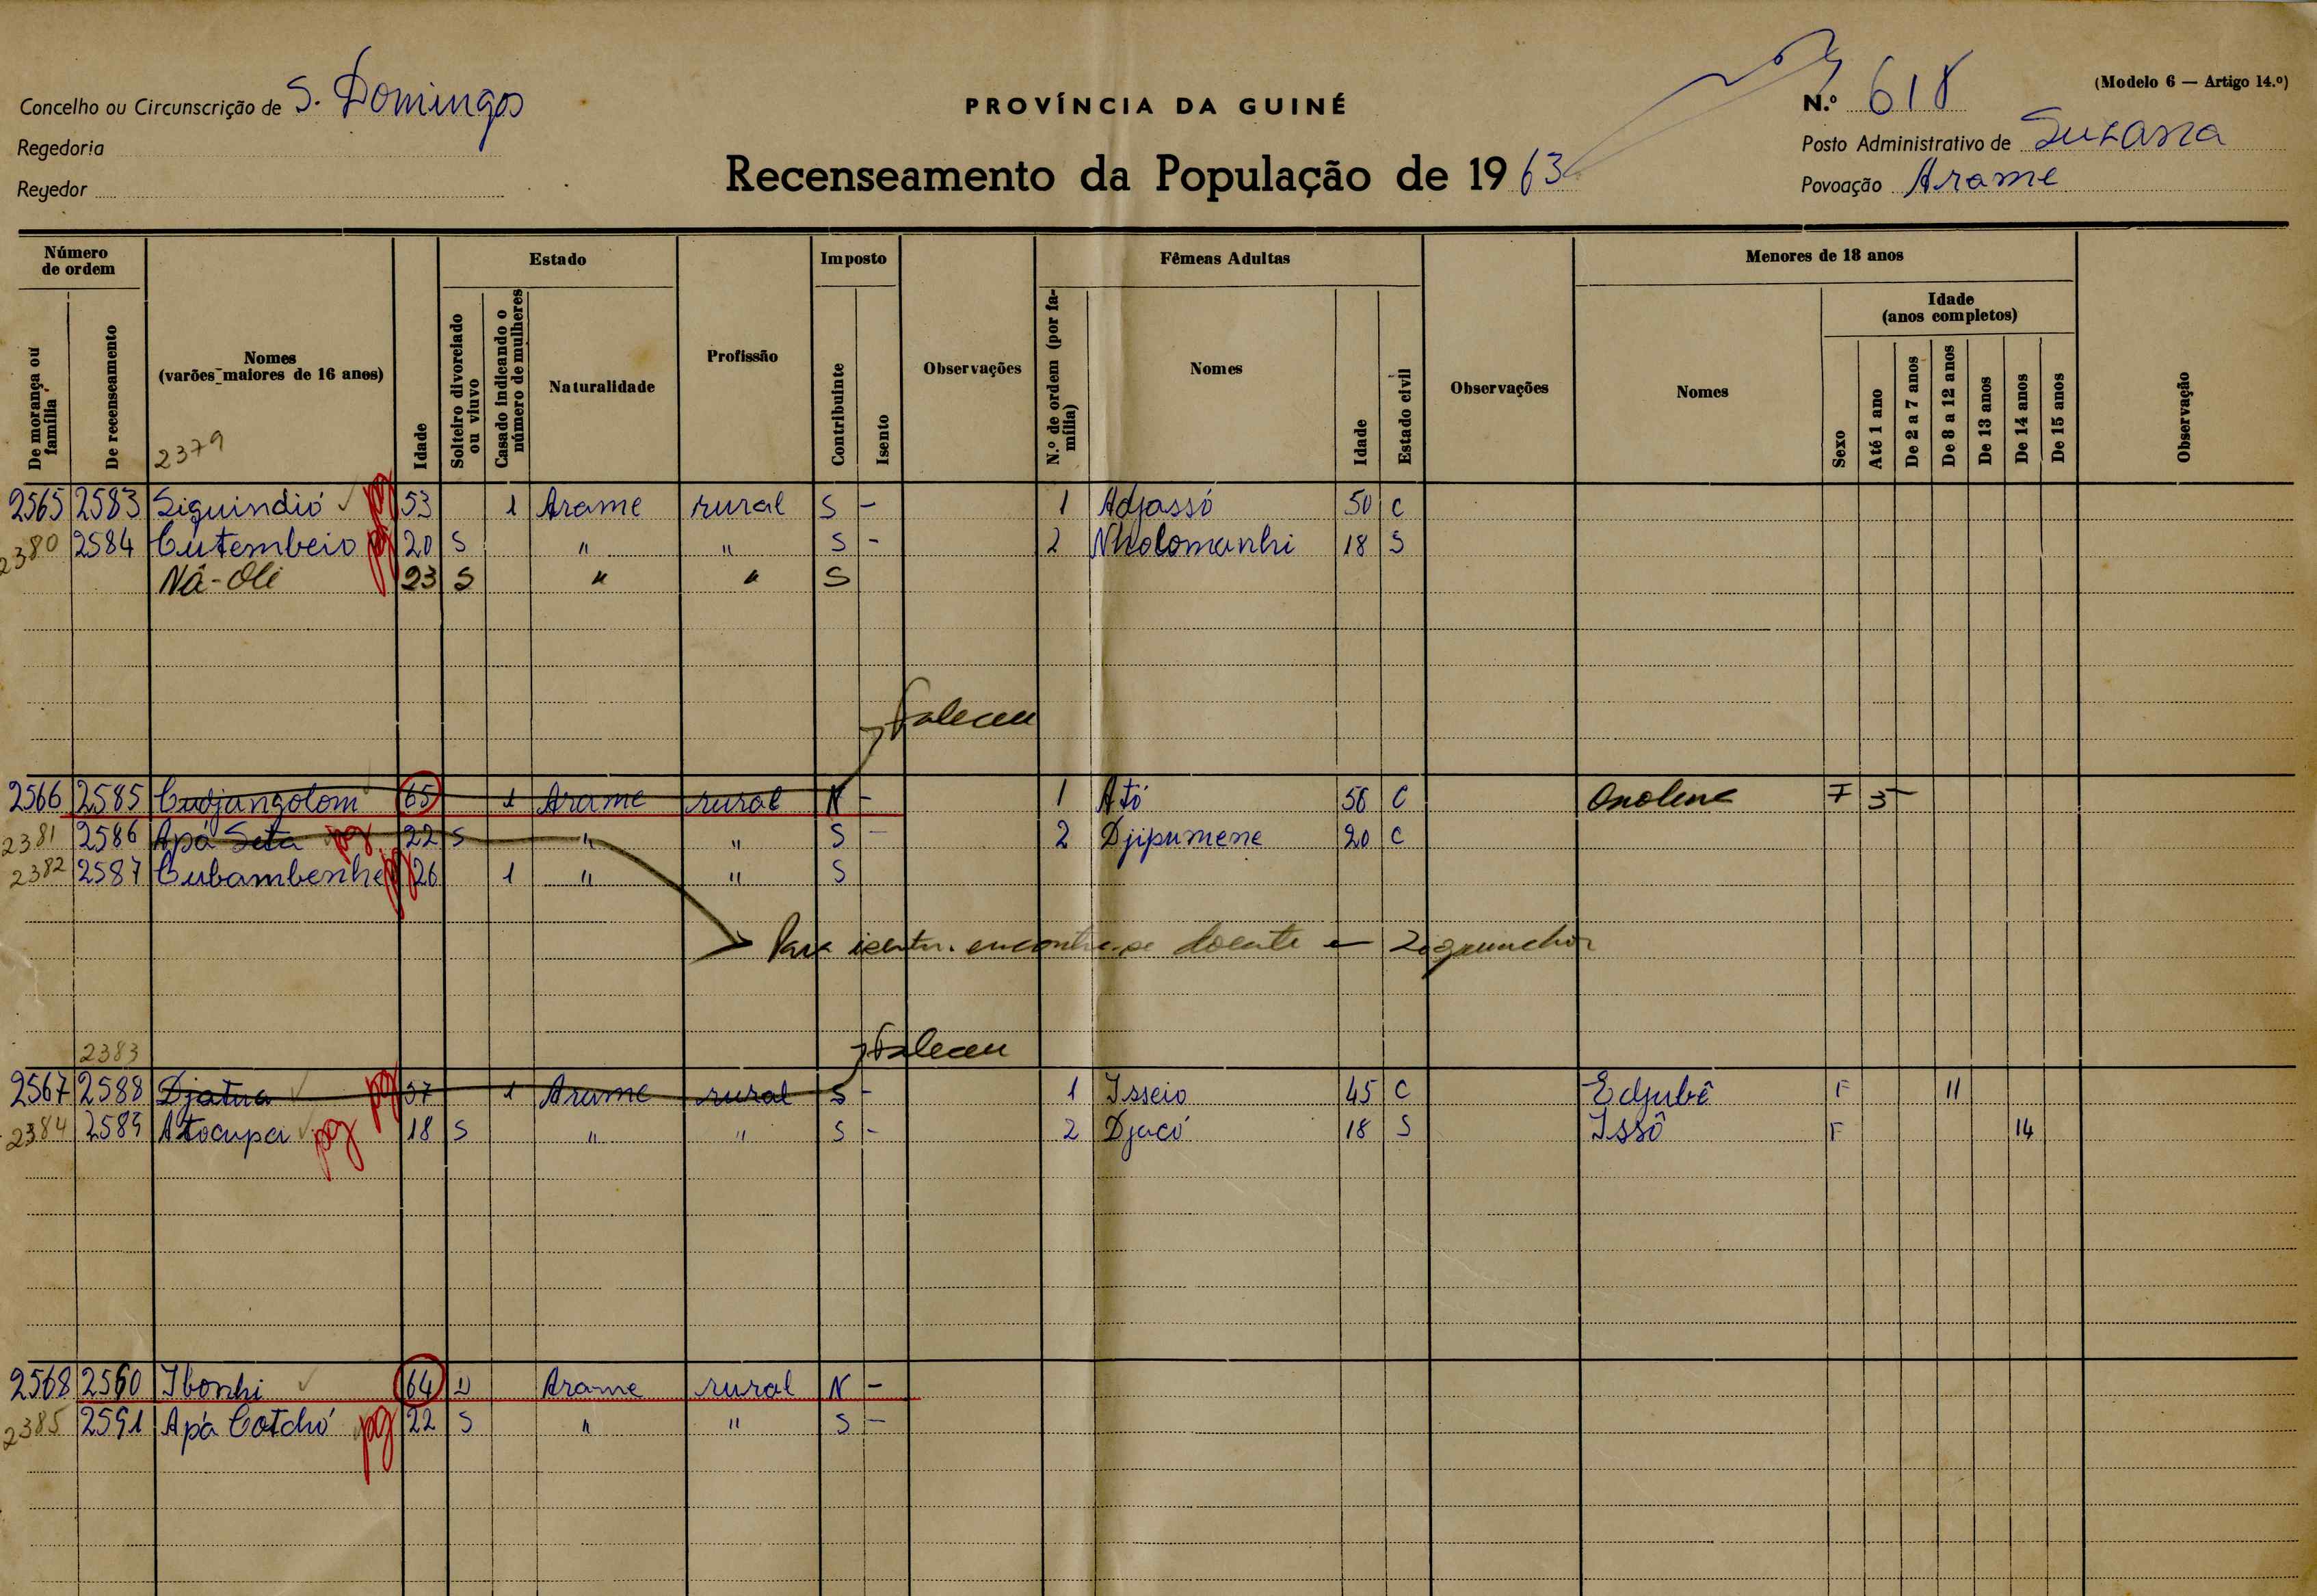 (Modelo 6 — Artigo 14.º)
Concelho ou Circunscrição de S. Domingos
PROVÍNCIA DA GUINÉ
N.º 618
Regedoria
Posto Administrativo de Suzana
Reyedor
Recenseamento da População de 1963
Povoação Arame
Número de ordem
Estado
Imposto
Fêmeas Adultas
Menores de 18 anos
Idade (anos completos)
De morança ou família
De recenseamento
Nomes (varões maiores de 16 anos)
Idade
Solteiro divorciado ou viuvo
Casado indicando o número de mulheres
Naturalidade
Profissão
Contribuinte
Isento
Observações
N.º de ordem (por família)
Nomes
Idade
Estado civil
Observações
Nomes
Sexo
Até 1 ano
De 2 a 7 anos
De 8 a 12 anos
De 13 anos
De 14 anos
De 15 anos
Observação
2379
2565 2583 Siguindió pg 53 1 Arame rural S - 1 Adjassó 50 C
2380 2584 Cutembeio pg 20 S " " S - 2 Nholomanhi 18 S
Nâ-Oli 23 S " " S
Faleceu
2566 2585 Cudjangolom 65 1 Arame rural N - 1 Ató 56 C Anolene F 3
2381 2586 Apá Seta pg 22 S " " S - 2 Djipumene 20 C
2382 2587 Cubambenhe pg 26 1 " " S
Para isentar. encontra-se doente em Ziguinchor
Faleceu
2383
2567 2588 Djatua pg 57 1 Arame rural S - 1 Isseio 45 C Edjubê F 11
2384 2589 Atocupai pg 18 S " " S - 2 Djacó 18 S Issô F 14
2568 2590 Ibonhi 64 Arame rural N -
2385 2591 Apá Cotchó pg 22 S " " S -